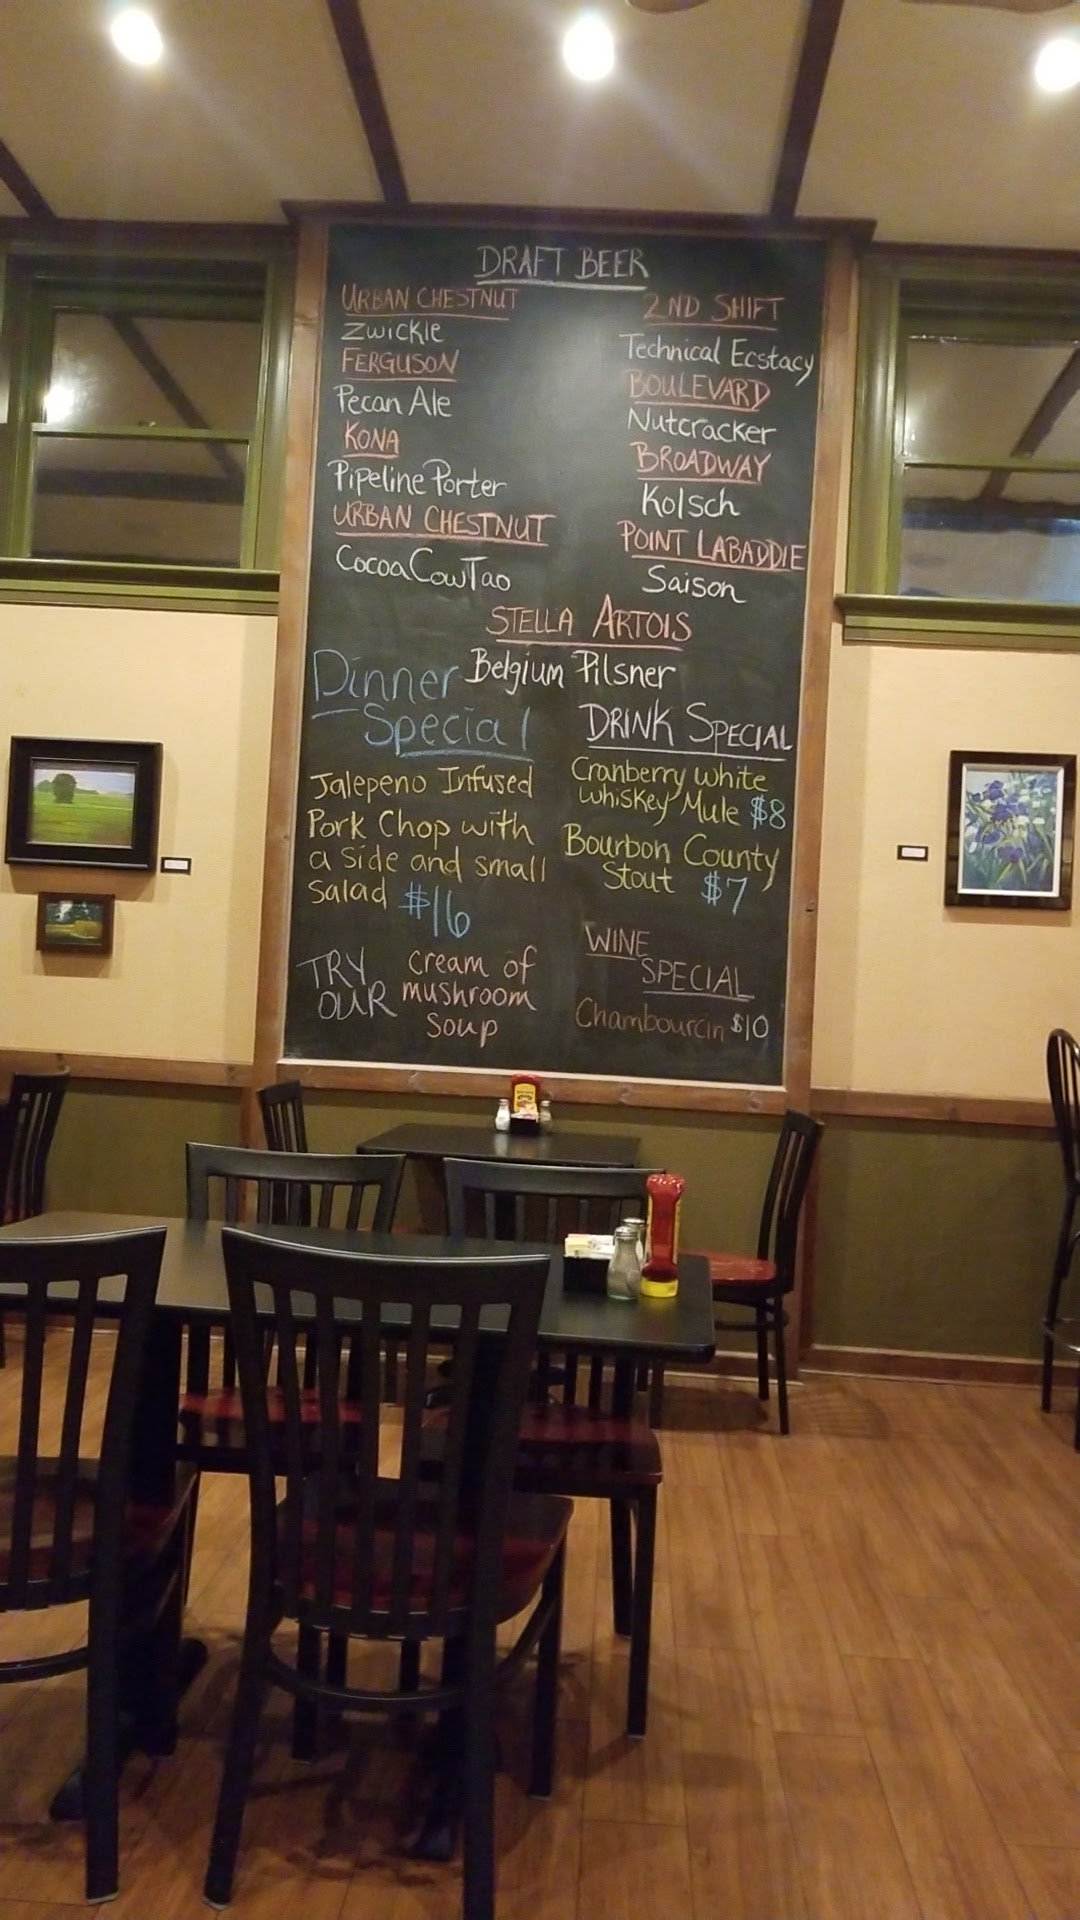 DRAFT BEER
URBAN CHESTNUT
Zwickle
FERGUSON
Pecan Ale
KONA
Pipeline Porter
URBAN CHESTNUT
CocoaCowTao
2ND SHIFT
Technical Ecstacy
BOULEVARD
Nutcracker
BROADWAY
Kolsch
POINT LABADDIE
Saison
STELLA ARTOIS
Belgium Pilsner
Dinner
Special
Jalepeno Infused
Pork Chop with
a side and small
salad $16
TRY
OUR
cream of
mushroom
soup
DRINK SPECIAL
Cranberry white
whiskey Mule $8
Bourbon County
Stout $7
WINE
SPECIAL
Chambourcin $10